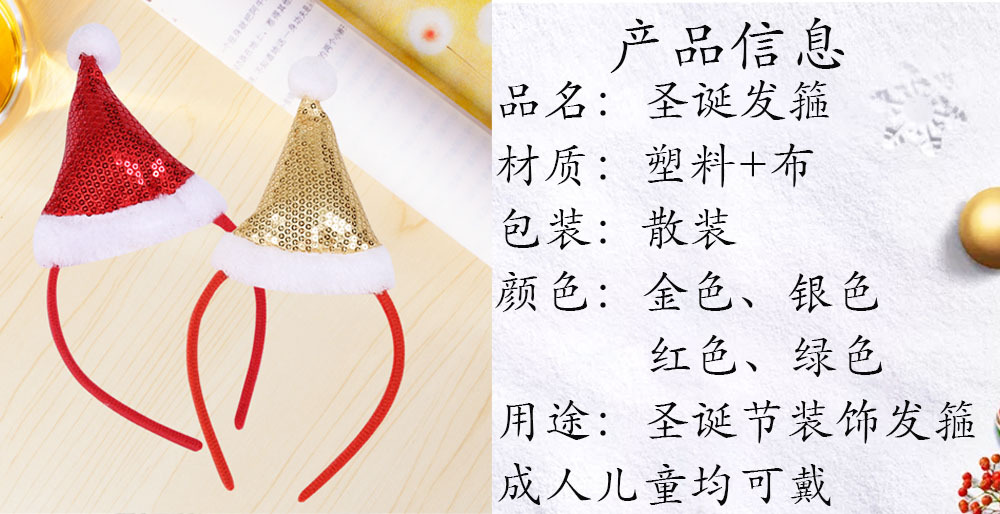 产品信息
品名：圣诞发箍
材质：塑料+布
包装：散装
颜色：金色、银色
红色、绿色
用途：圣诞节装饰发箍
成人儿童均可戴